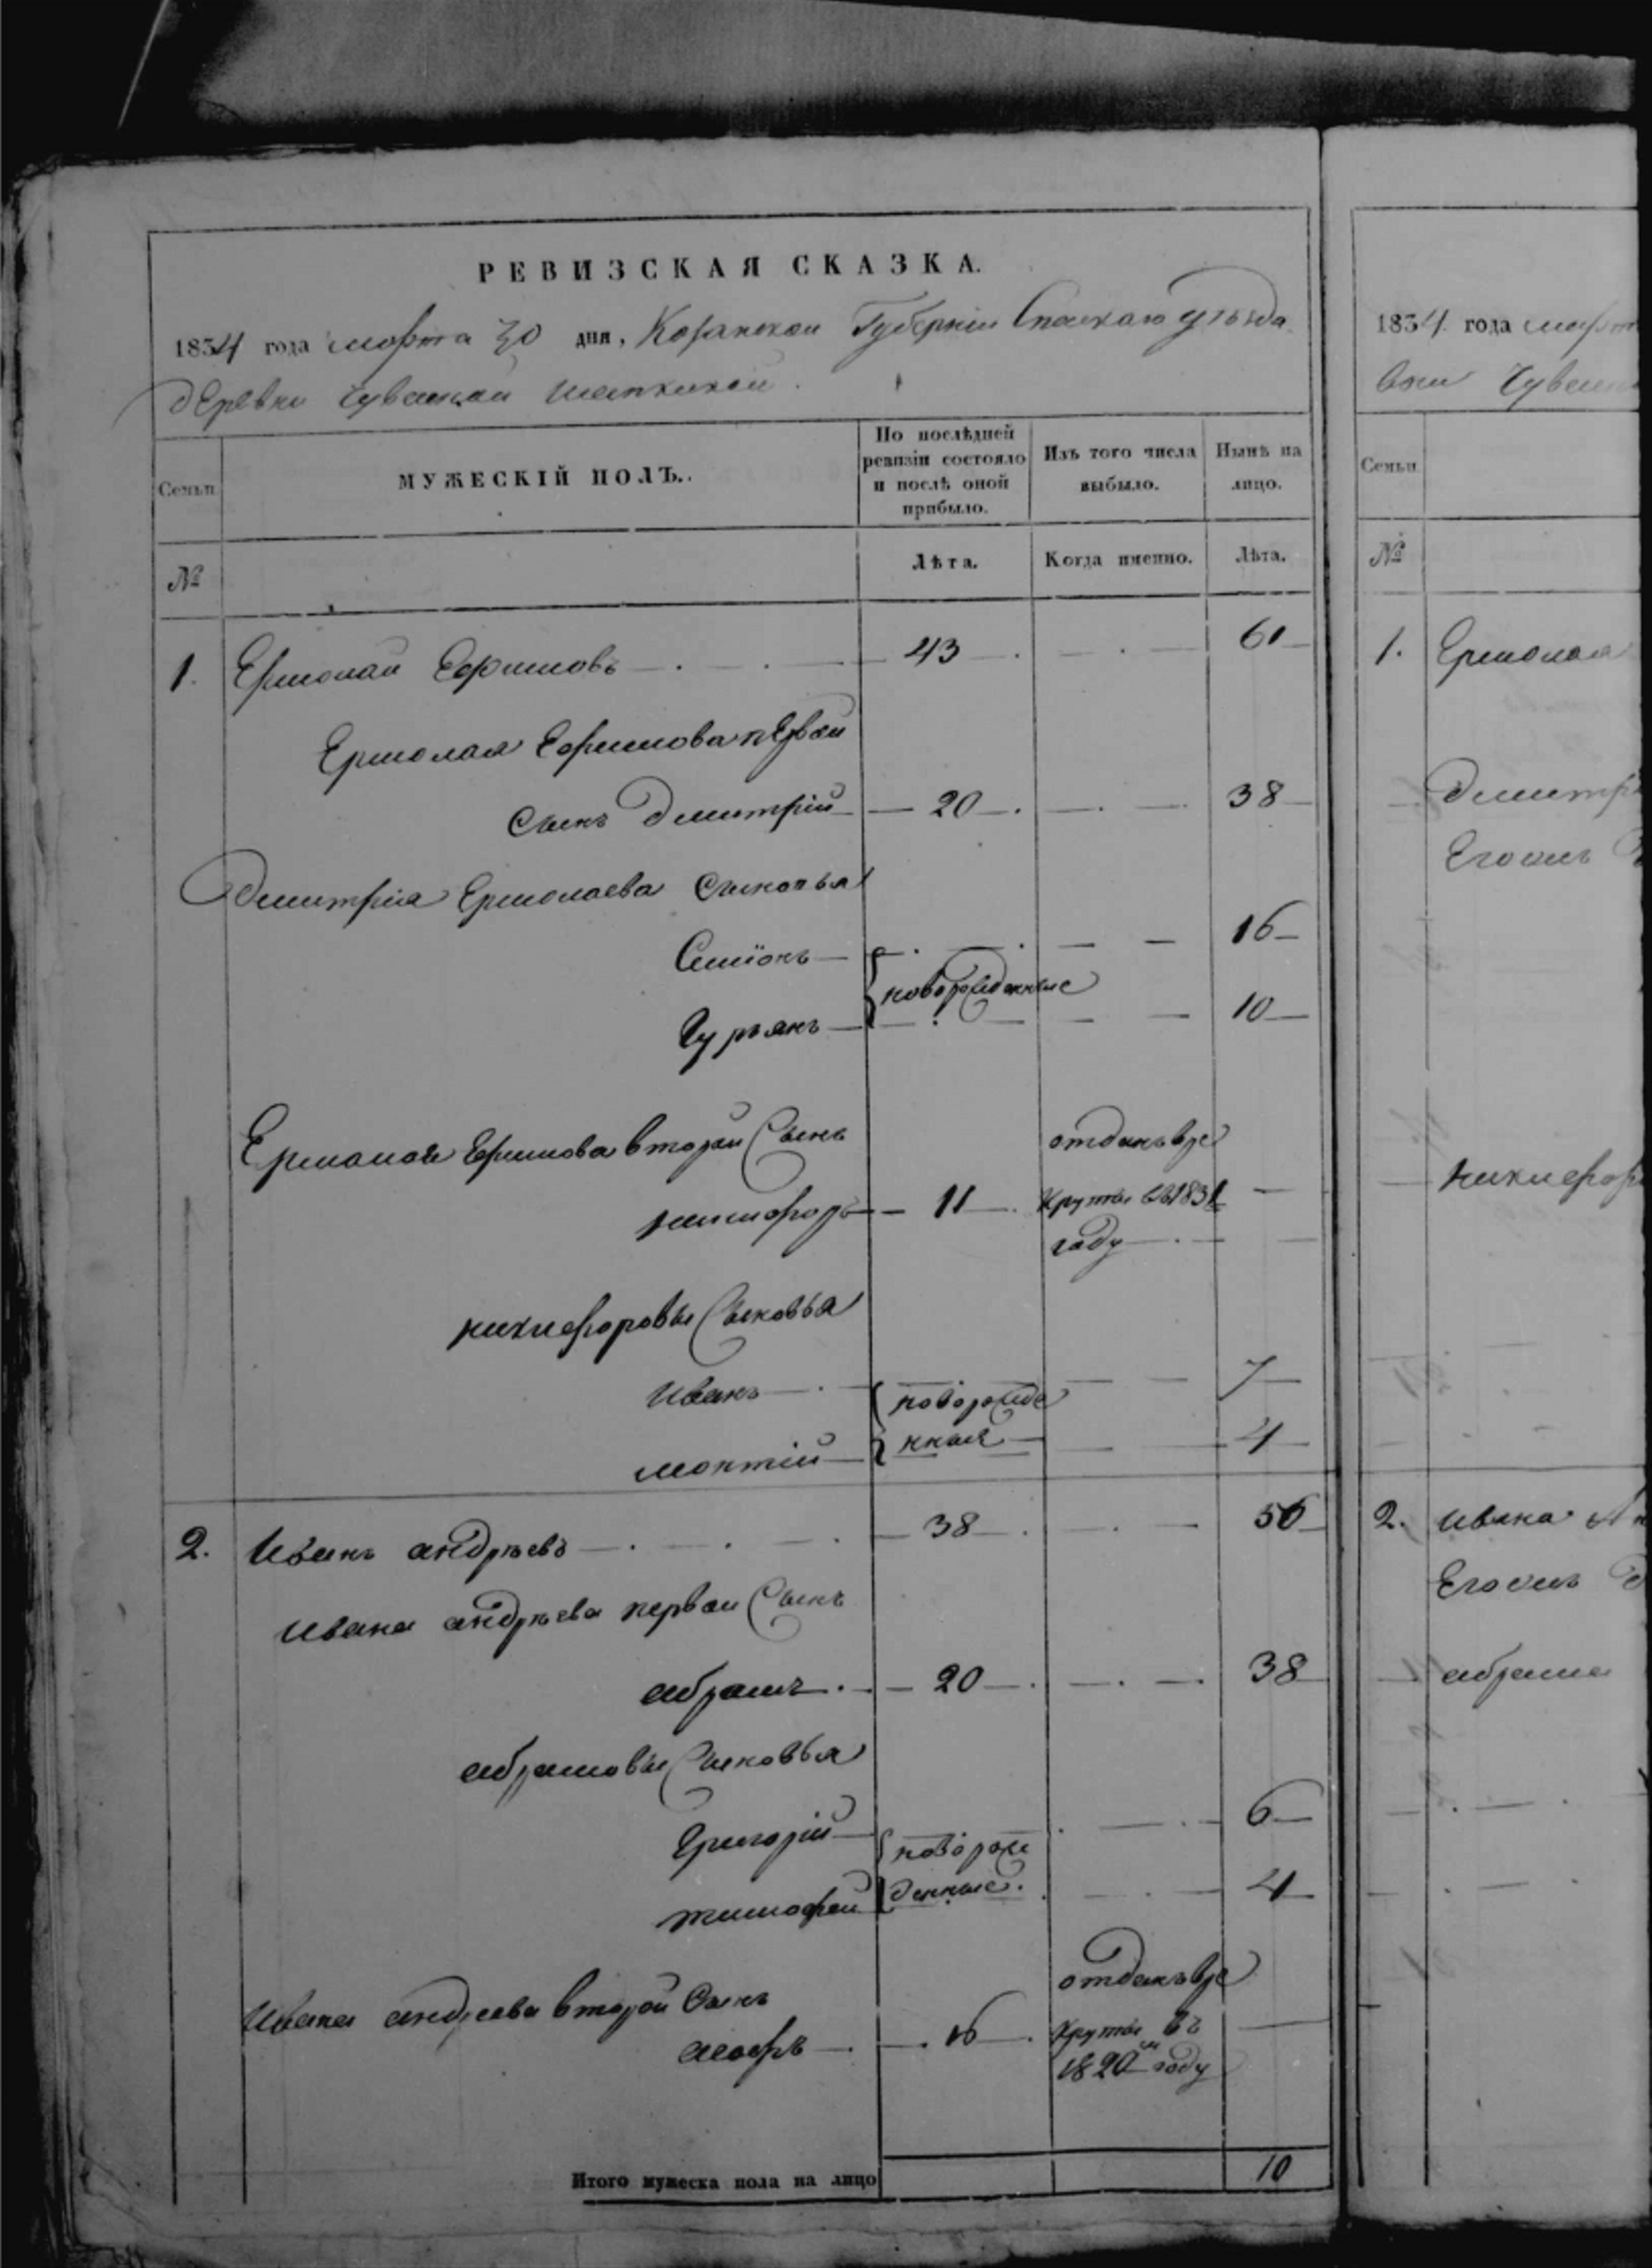 РЕВИЗСКАЯ СКАЗКА.
1834 года марта 30 дня, Казанской Губернии Спаскаго уѣзда
деревни Чувашкой
Семьи
МУЖЕСКІЙ ПОЛЪ.
По послѣдней ревизіи состояло и послѣ оной прибыло.
Изъ того числа выбыло.
Нынѣ на лицо.
№
Лѣта.
Когда именно.
Лѣта.
1. Ермолай Ефимовъ 43 61
Ермолая Ефимова первой
сынъ Дмитрій 20 38
Дмитрія Ермолаева сыновья
Семіонъ 16
новорожденные
Гурьянъ 10
Ермолая Ефимова второй Сынъ
отданъ вре
никифоръ 11 круты въ 1831
году
никифоровы Сыновья
Иванъ новорожде 7
нныя 4
2. Иванъ андрѣевъ 38 56
Ивана андрѣева первой Сынъ
абрамъ 20 38
абрамовы Сыновья
Григорій 6
новорож
тимофей денные 4
Ивана андреева второй Сынъ
отданъ вре
16 круты въ
1820м году
Итого мужеска пола на лицо 10
1834 года
Семьи
№
1. Ермолая
2. Ивана
абрама